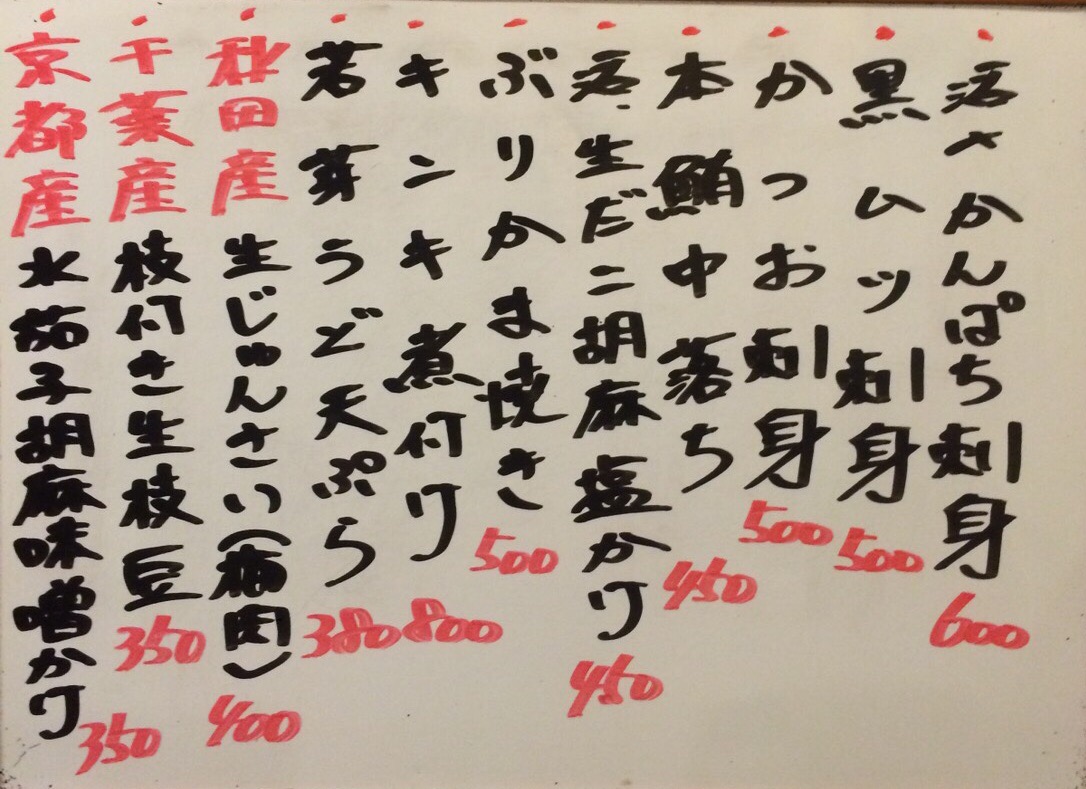 活〆かんぱち刺身 600
黒ムツ刺身 500
かつお刺身 500
本鮪中落ち 450
活生だこ胡麻塩かけ 450
ぶりかま焼き 500
キンキ煮付け 800
若芽うど天ぷら 380
秋田産 生じゅんさい(梅肉) 400
千葉産 枝付き生枝豆 350
京都産 水茄子胡麻味噌かけ 350